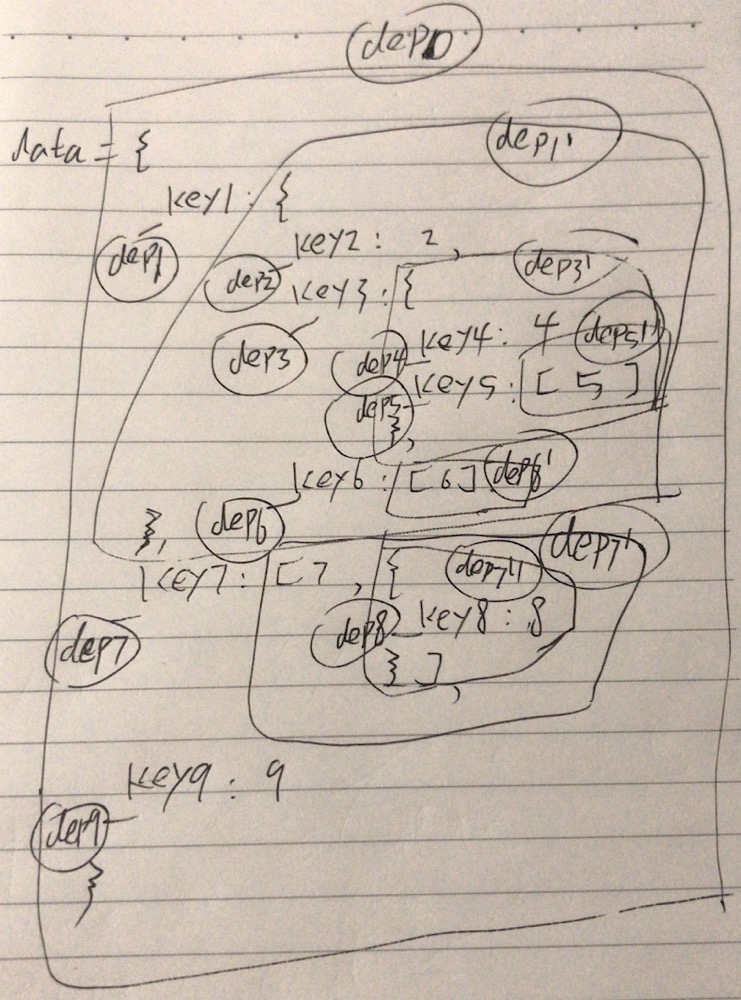 dep0
dep1'
data = {
key1: {
dep1
key2: 2,
dep2
key3: {
dep3'
dep3
key4: 4
dep5'
dep4
key5: [ 5 ]
dep5
},
key6: [ 6 ]
dep6'
},
dep6
dep7'
key7: [ 7 , {
dep7''
dep8
key8: 8
dep7
} ]
,
key9: 9
dep9
}